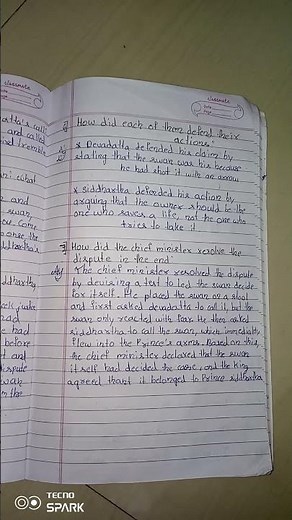 artha's call
and called
had tremble
ni what
and
swan,
come
oose the
ddhartha's
ddhartha
ack, juke
nad
e had
before
t and
ispute
swan
n the
classmate
Date
Page
How did each of them defend their
actions?
x Devadatta defended his claim by
stating that the swan was his because
he had shot it with an arrow
x siddhartha defended his action by
arguing that the owner should be the
one who saves a life, not the one who
tries to take it
How did the chief minister resolve the
dispute in the end
The chief minister resolved the dispute
by devising a test to led the swan decide
for itself. He placed the swan on a stool
and first asked devadatta to call it, but the
swan only reacted with fear. He then asked
siddhartha to call the swan, which immediatly
flew into the Prince's arms. Based on this,
the chief minister declared that the swan
itself had decided the case, and the king
agreed thant it belonged to Prince siddhartha
TECNO
SPARK